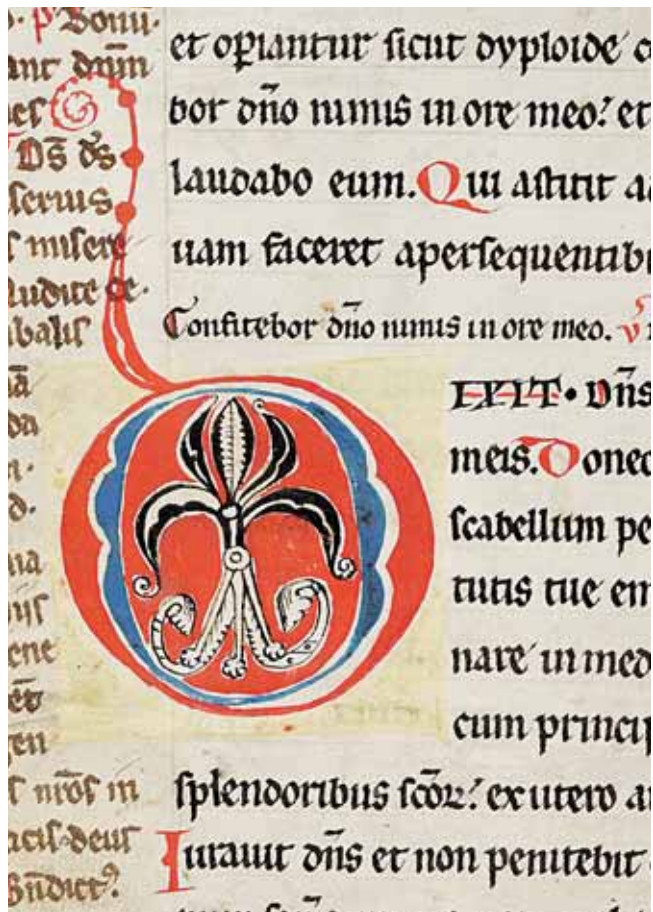 p. Bonu.
ant dnm̄
Ds ds
serius
misere
audite
balis
da
ene
nros in
deus
Bndict
et opiantur sicut dyploide
bor dño nimis in ore meo: et
laudabo eum. Qui astitit a
uam faceret apersequentib
Confitebor dño nimis in ore meo. v
D
IXIT. Dñs
meis. Donec
scabellum pe
tutis tue em
nare in med
cum princip
splendoribus scōꝝ: ex utero a
Iurauit dñs et non penitebit